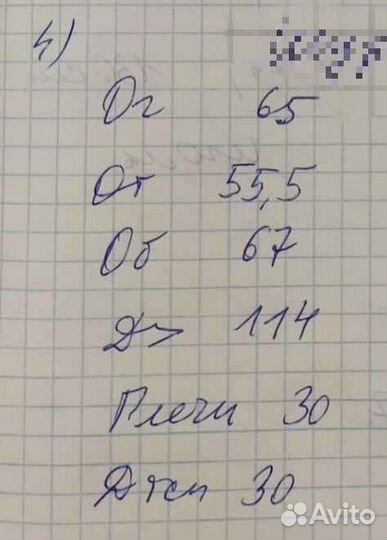 4)
Ог 65
От 55,5
Об 67
Ди 114
Плечи 30
Дтсп 30
Avito